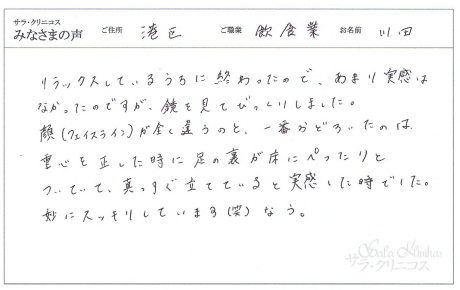 サラ・クリニコス
みなさまの声 ご住所 港区 ご職業 飲食業 お名前 川田
リラックスしているうちに終わったので、あまり実感は
なかったのですが、鏡を見てびっくりしました。
顔(フェイスライン)が全く違うのと、一番おどろいたのは、
重心を正した時に足の裏が床にぺったりと
ついていて、真っすぐ立てていると実感した時でした。
妙にスッキリしています(笑)なう。
Sala Klinikos
サラ・クリニコス